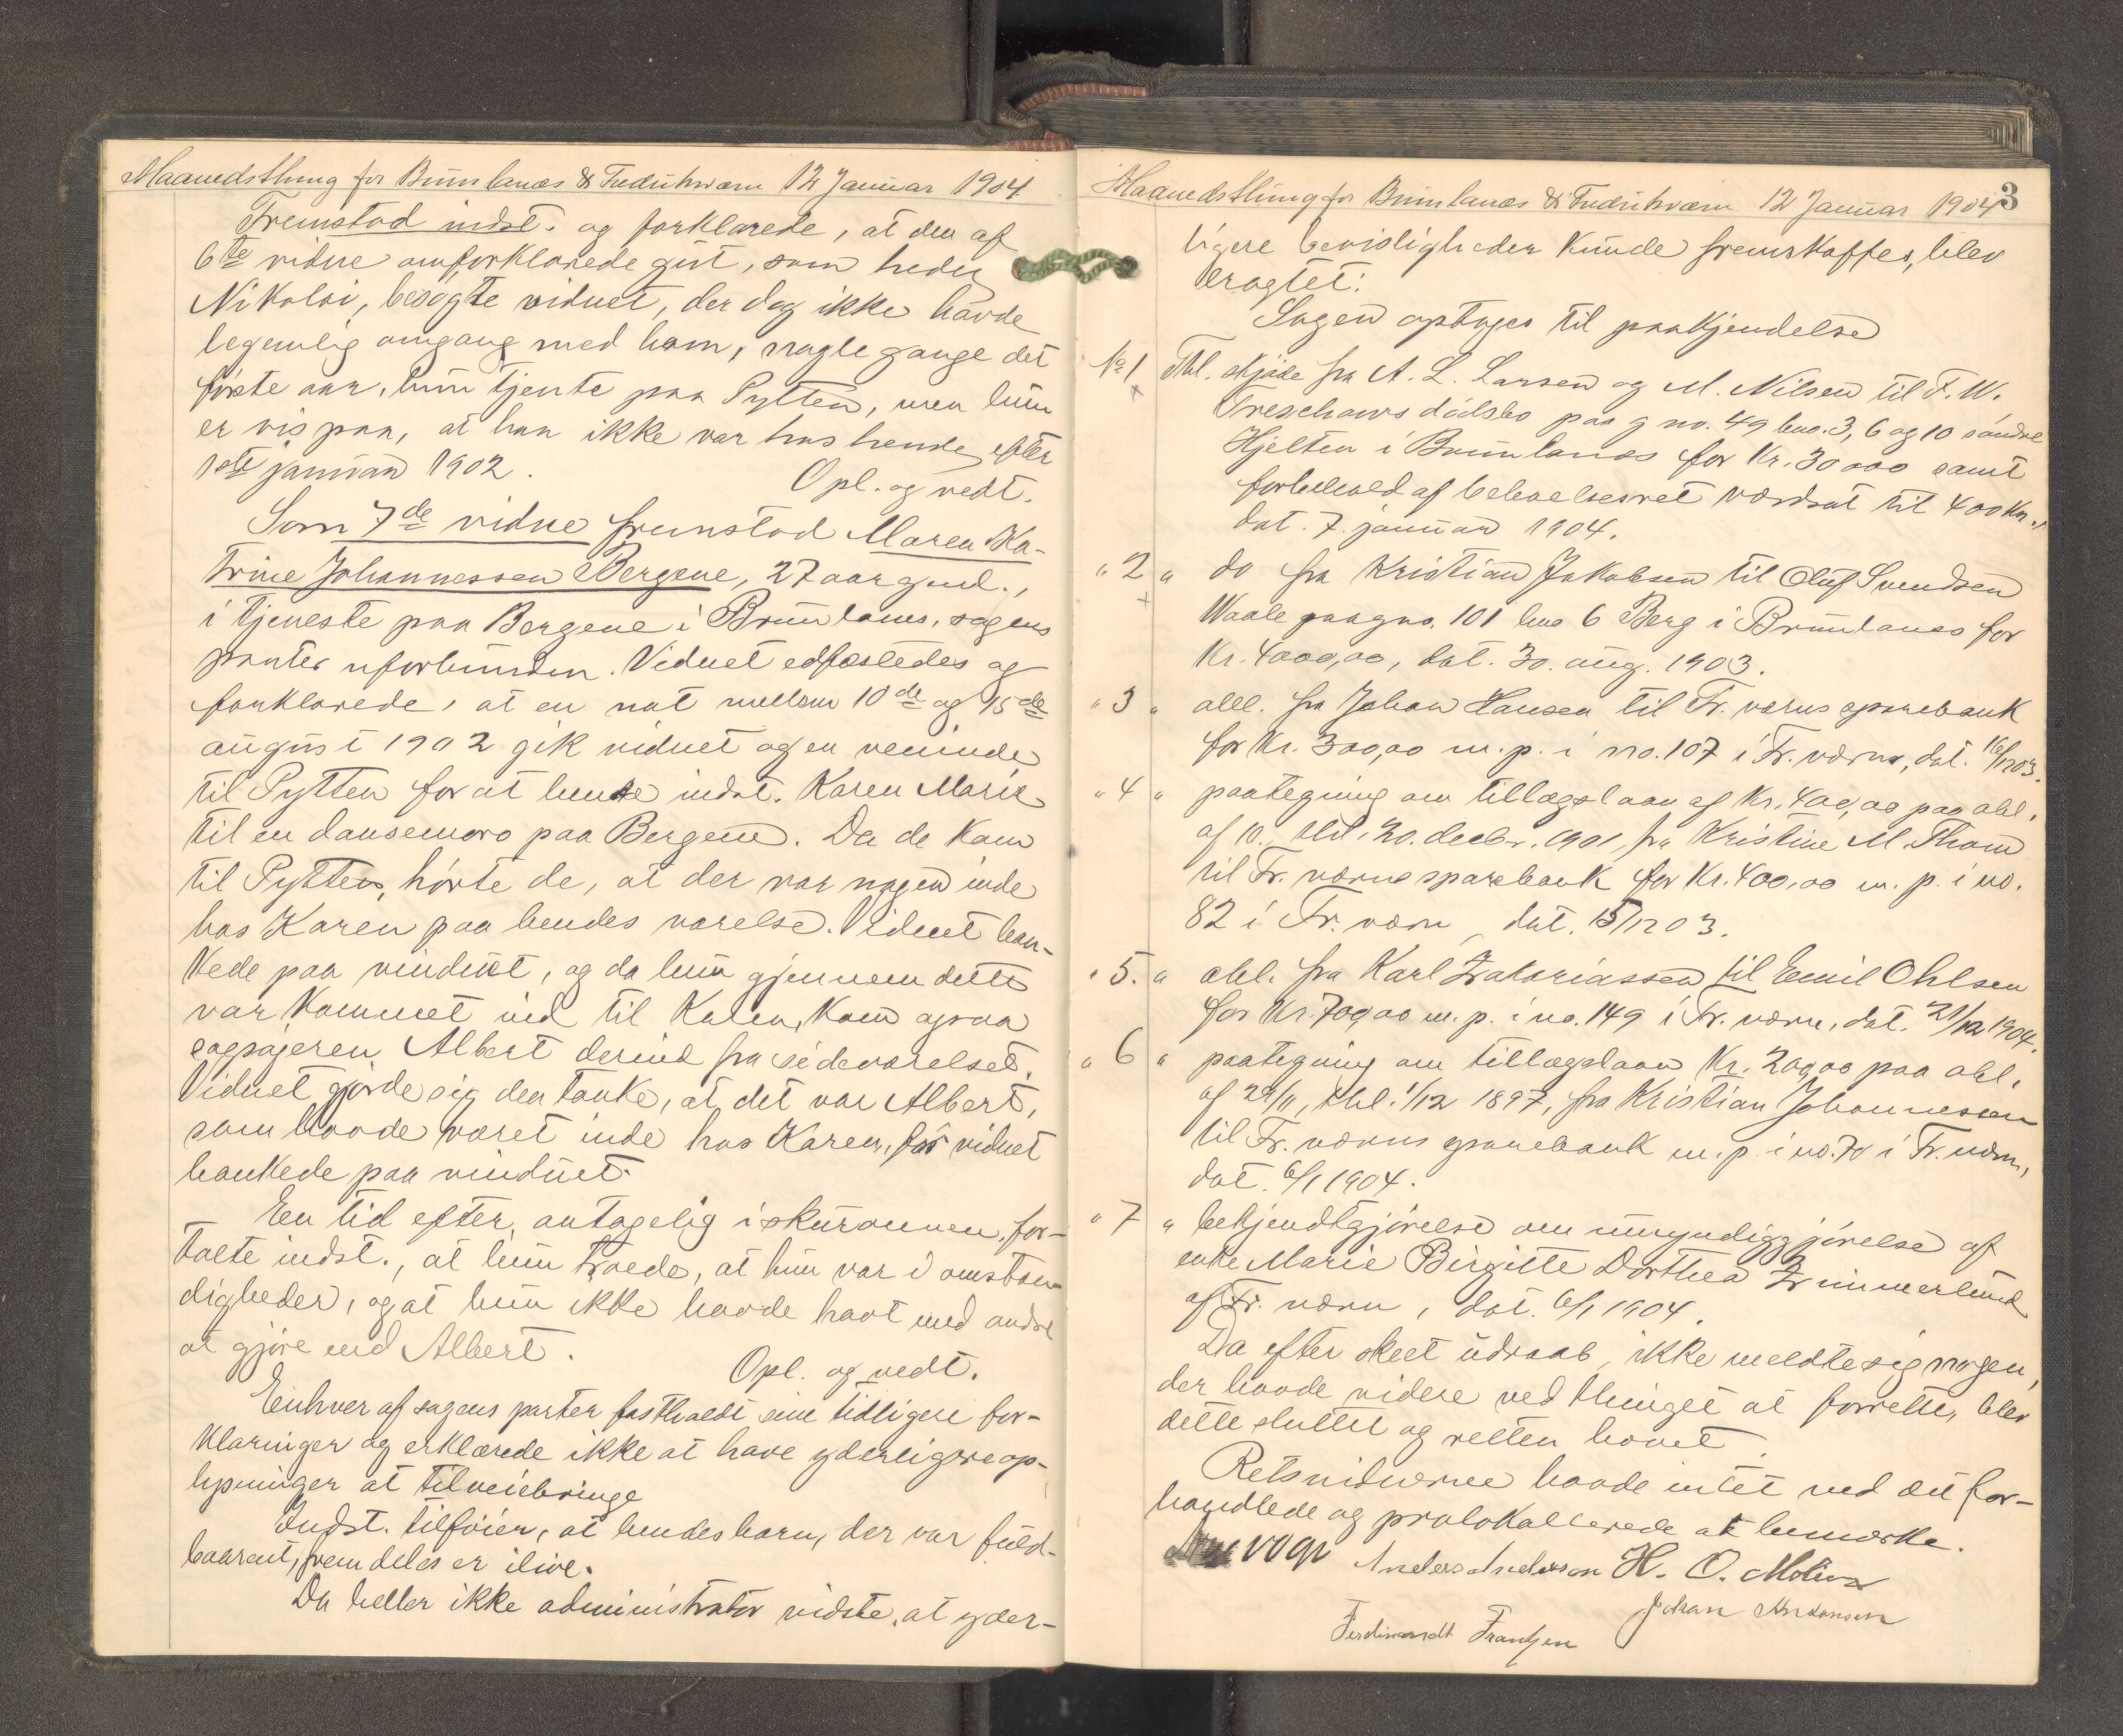 Maanedsthing for Brunlanæs & Fredriksværn 12 Januar 1904
Fremstod indst. og forklarede, at den af
6te vidne omforklarede gut, som heder
Nikolai, besøgte vidnet, der dog ikke havde
legemlig omgang med ham, nogle gange det
første aar, hun tjente paa Pytten, men hun
er vis paa, at han ikke var hos hende efter
1ste januar 1902.
Opl. og vedt.
Som 7de vidne fremstod Maren Ka-
trine Johannessen Bergene, 27 aar gml.,
i tjeneste paa Bergene i Brunlanes, sagens
parter uforbunden. Vidnet edfæstedes og
forklarede, at en nat mellem 10de og 15de
august 1902 gik vidnet og en veninde
til Pytten for at hente indst. Karen Marie
til en dansemoro paa Bergene. Da de kom
til Pytten, hørte de, at der var nogen inde
hos Karen paa hendes værelse. Vidnet ban-
kede paa vinduet, og da hun gjennem dette
var kommet ind til Karen, kom ogsaa
sagsøgeren Albert derind fra sideværelset.
Vidnet gjorde sig den tanke, at det var Albert,
som havde været inde hos Karen, før vidnet
bankede paa vinduet.
En tid efter, antagelig i skuronnen, for-
talte indst., at hun troede, at hun var i omstæn-
digheder, og at hun ikke havde havt med andre
at gjøre end Albert.
Opl. og vedt.
Enhver af sagens parter fastholdt sine tidligere for-
klaringer og erklærede ikke at have yderligere op-
lysninger at tilveiebringe
Indst. tilføier, at hendes barn, der var fuld-
baarent, fremdeles er ilive.
Da heller ikke administrator vidste, at yder-
Maanedsthing for Brunlanæs & Fredriksværn 12 Januar 1904 3
ligere bevisligheder kunde fremskaffes, blev
eragtet:
Sagen optages til paakjendelse
No 1 Thl. skjøde fra A. L. Larsen og M. Nilsen til F. W.
Treschows dødsbo paa g no. 49 bno. 3, 6 og 10 søndre
Hjelten i Brunlanes for Kr. 30 000 samt
forbehold af beboelsesret værdsat til 400 Kr.,
dat. 7. januar 1904.
" 2 " do fra Kristian Jakobsen til Oluf Svendsen
Waale paa gno. 101 bno 6 Berg i Brunlanes for
Kr. 4000,00, dat. 30. aug. 1903.
" 3 " obl. fra Johan Hansen til Fr. værns sparebank
for Kr. 300,00 m. p. i no. 107 i Fr. værn, dat. 16/12 03.
" 4 " paategning om tillægslaan af Kr. 400,00 paa obl.
af 10., thl. 20. decbr. 1901, fra Kristine M. Thom
til Fr. værns sparebank for Kr. 400,00 m. p. i no.
82 i Fr. værn, dat. 15/12 03.
" 5. " obl. fra Karl Zakariassen til Emil Ohlsen
for Kr. 700,00 m. p. i no. 149 i Fr. værn, dat. 21/12 1904.
" 6 " paategning om tillægslaan Kr. 200,00 paa obl.
af 29/11, thl. 1/12 1897, fra Kristian Johannessen
til Fr. værns sparebank m. p. i no. 70 i Fr. værn,
dat. 6/1 1904.
" 7 " bekjendtgjørelse om umyndiggjørelse af
enke Marie Birgitte Dorthea Zimmerlund
af Fr. værn, dat. 6/1 1904.
Da efter skeet udraab ikke meldte sig nogen,
der havde videre ved thinget at forrette, blev
dette sluttet og retten hævet.
Retsvidnerne havde intet ved det for-
handlede og protokollerede at bemærke.
Anders Andersson H. O. Molin
Johan Andersen
Ferdinandt Frantzen